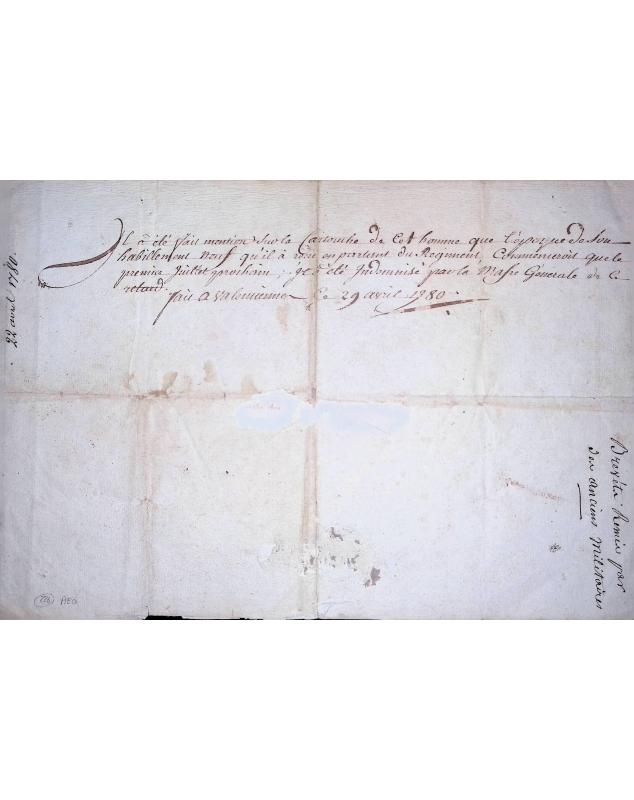 Il à été fait mention sur la Cartouche de Cet homme que l'époque de Son
habillement neuf qu'il à reçu en partant du Regiment, Commenceroit que le
premier Juillet prochain, et été Indemnisé par la Masse Generale de Ce
retard.
fait a valenciennes Le 29 avril 1780.
22 avril 1780.
Brevets Remis par
des anciens Militaires
226 AEG